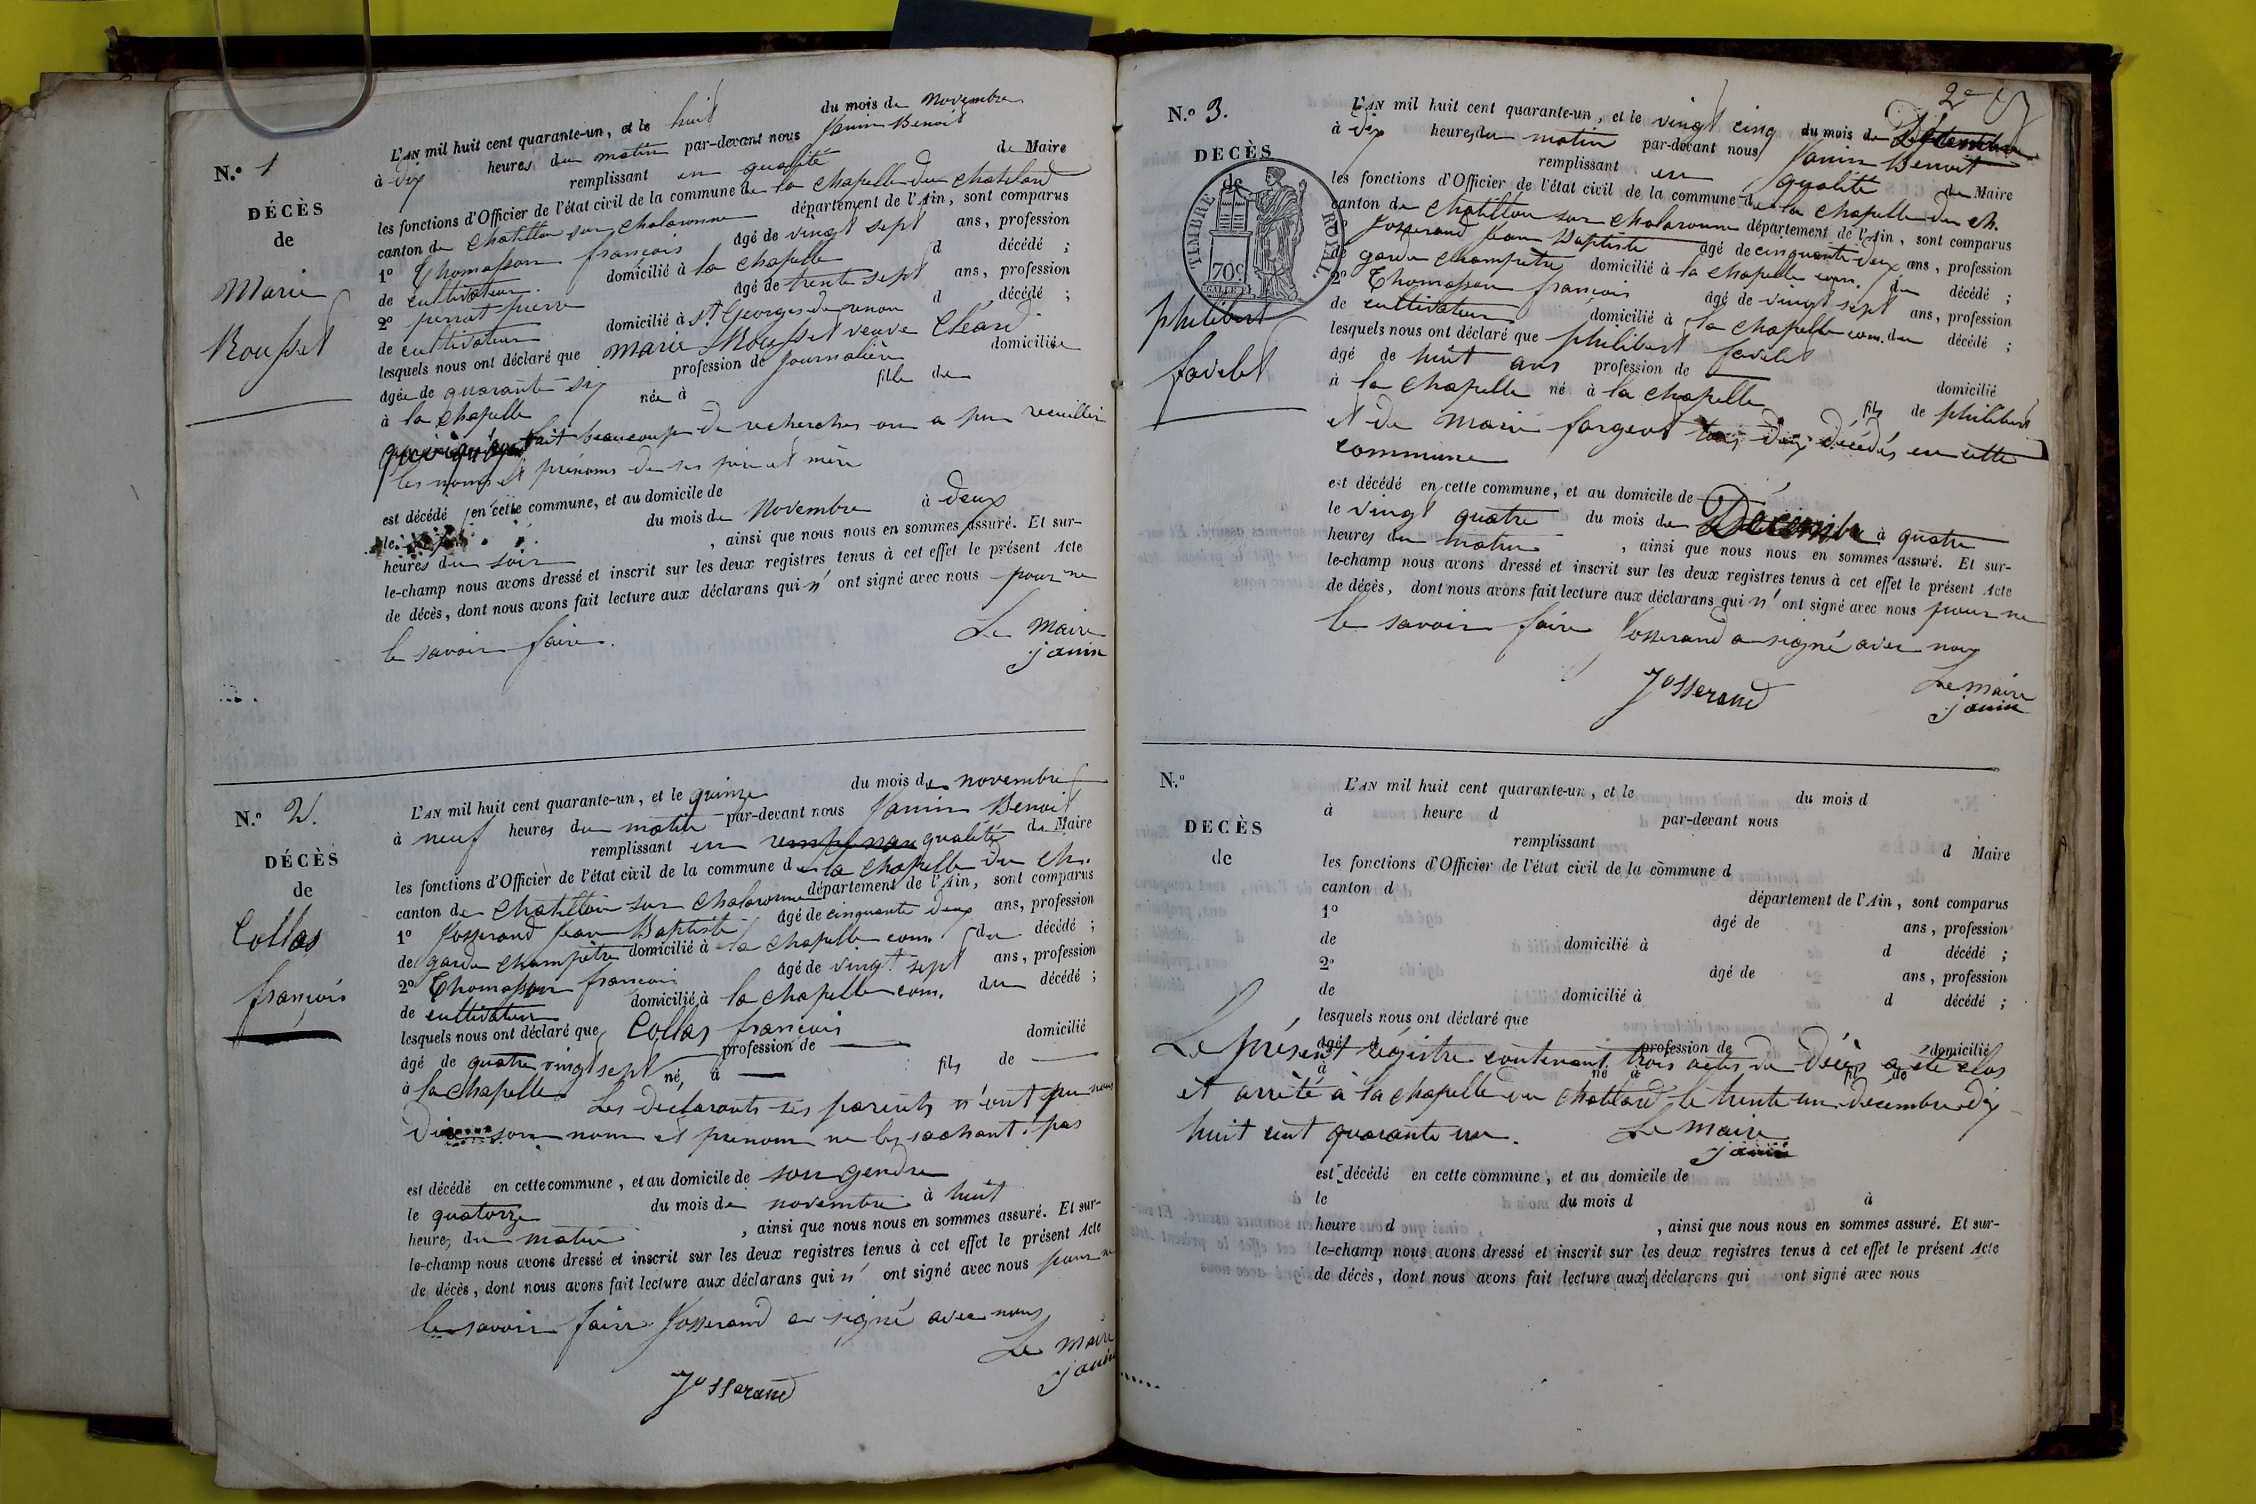 N.o 1
DÉCÈS
de
Marie
Rousset
L'AN mil huit cent quarante-un, et le huit du mois de Novembre
à dix heures du matin par-devant nous Janin Benoit
remplissant en qualité de Maire
les fonctions d'Officier de l'état civil de la commune de la chapelle du chatelard
canton de chatillon sur chalaronne département de l'Ain, sont comparus
1o Thomasson françois âgé de vingt sept ans, profession
de cultivateur domicilié à la chapelle d décédé ;
2o perrat pierre âgé de trente sept ans, profession
de cultivateur domicilié à St Georges de renon d décédé ;
lesquels nous ont déclaré que Marie Rousset veuve Cléard
âgée de quarante six profession de journalière domiciliée
à la chapelle née à fille de
fait beaucoup de recherches on a pu recueillir
les noms et prénoms de ses père et mère
est décédé en cette commune, et au domicile de
le du mois de Novembre à deux
heures du soir , ainsi que nous nous en sommes assuré. Et sur-
le-champ nous avons dressé et inscrit sur les deux registres tenus à cet effet le présent Acte
de décès, dont nous avons fait lecture aux déclarans qui n'ont signé avec nous pour ne
le savoir faire.
Le Maire
janin
N.o 2.
DÉCÈS
de
Collas
françois
L'AN mil huit cent quarante-un, et le quinze du mois de novembre
à neuf heures du matin par-devant nous Janin Benoit
remplissant en qualité de Maire
les fonctions d'Officier de l'état civil de la commune de la chapelle du ch.
canton de chatillon sur chalaronne département de l'Ain, sont comparus
1o Josserand Jean Baptiste âgé de cinquante deux ans, profession
de garde champêtre domicilié à la chapelle com. du décédé ;
2o Thomasson françois âgé de vingt sept ans, profession
de cultivateur domicilié à la chapelle com. du décédé ;
lesquels nous ont déclaré que Collas françois
âgé de quatre vingt sept profession de domicilié
à la chapelle né à fils de
Les declarants ses parents n'ont pu nous
dire son nom et prenom ne les sachant pas
est décédé en cette commune, et au domicile de son gendre
le quatorze du mois de novembre à huit
heures du matin , ainsi que nous nous en sommes assuré. Et sur-
le-champ nous avons dressé et inscrit sur les deux registres tenus à cet effet le présent Acte
de décès, dont nous avons fait lecture aux déclarans qui n'ont signé avec nous pour ne
le savoir faire Josserand a signé avec nous
Le Maire
janin
Josserand
2e
N.o 3.
DECÈS
de
TIMBRE ROYAL
70c
philibert
favelet
L'AN mil huit cent quarante-un, et le vingt cinq du mois de Décembre
à dix heures du matin par-devant nous Janin Benoit
remplissant en qualité de Maire
les fonctions d'Officier de l'état civil de la commune de la chapelle du ch.
canton de chatillon sur chalaronne département de l'Ain, sont comparus
1o Josserand Jean Baptiste âgé de cinquante deux ans, profession
de garde champêtre domicilié à la chapelle com. du décédé ;
2o Thomasson françois âgé de vingt sept ans, profession
de cultivateur domicilié à la chapelle com. du décédé ;
lesquels nous ont déclaré que philibert favelet
âgé de huit ans profession de domicilié
à la chapelle né à la chapelle fils de philibert
et de Marie fargeot tous deux décédés en cette
commune
est décédé en cette commune, et au domicile de
le vingt quatre du mois de Décembre à quatre
heures du matin , ainsi que nous nous en sommes assuré. Et sur-
le-champ nous avons dressé et inscrit sur les deux registres tenus à cet effet le présent Acte
de décès, dont nous avons fait lecture aux déclarans qui n'ont signé avec nous pour ne
le savoir faire Josserand a signé avec nous
Josserand
Le maire
janin
N.o
DECÈS
de
L'AN mil huit cent quarante-un, et le du mois d
à heure d par-devant nous
remplissant d Maire
les fonctions d'Officier de l'état civil de la commune d
canton d département de l'Ain, sont comparus
1o âgé de ans, profession
de domicilié à d décédé ;
2o âgé de ans, profession
de domicilié à d décédé ;
lesquels nous ont déclaré que
âgé d profession de domicilié
à né à fil de
Le présent régistre contenant trois actes de décès a été clos
et arrêté à la chapelle du chatelard le trente un decembre dix
huit cent quarante un.
Le Maire
janin
est décédé en cette commune, et au domicile de
le du mois d à
heure d , ainsi que nous nous en sommes assuré. Et sur-
le-champ nous avons dressé et inscrit sur les deux registres tenus à cet effet le présent Acte
de décès, dont nous avons fait lecture aux déclarans qui ont signé avec nous